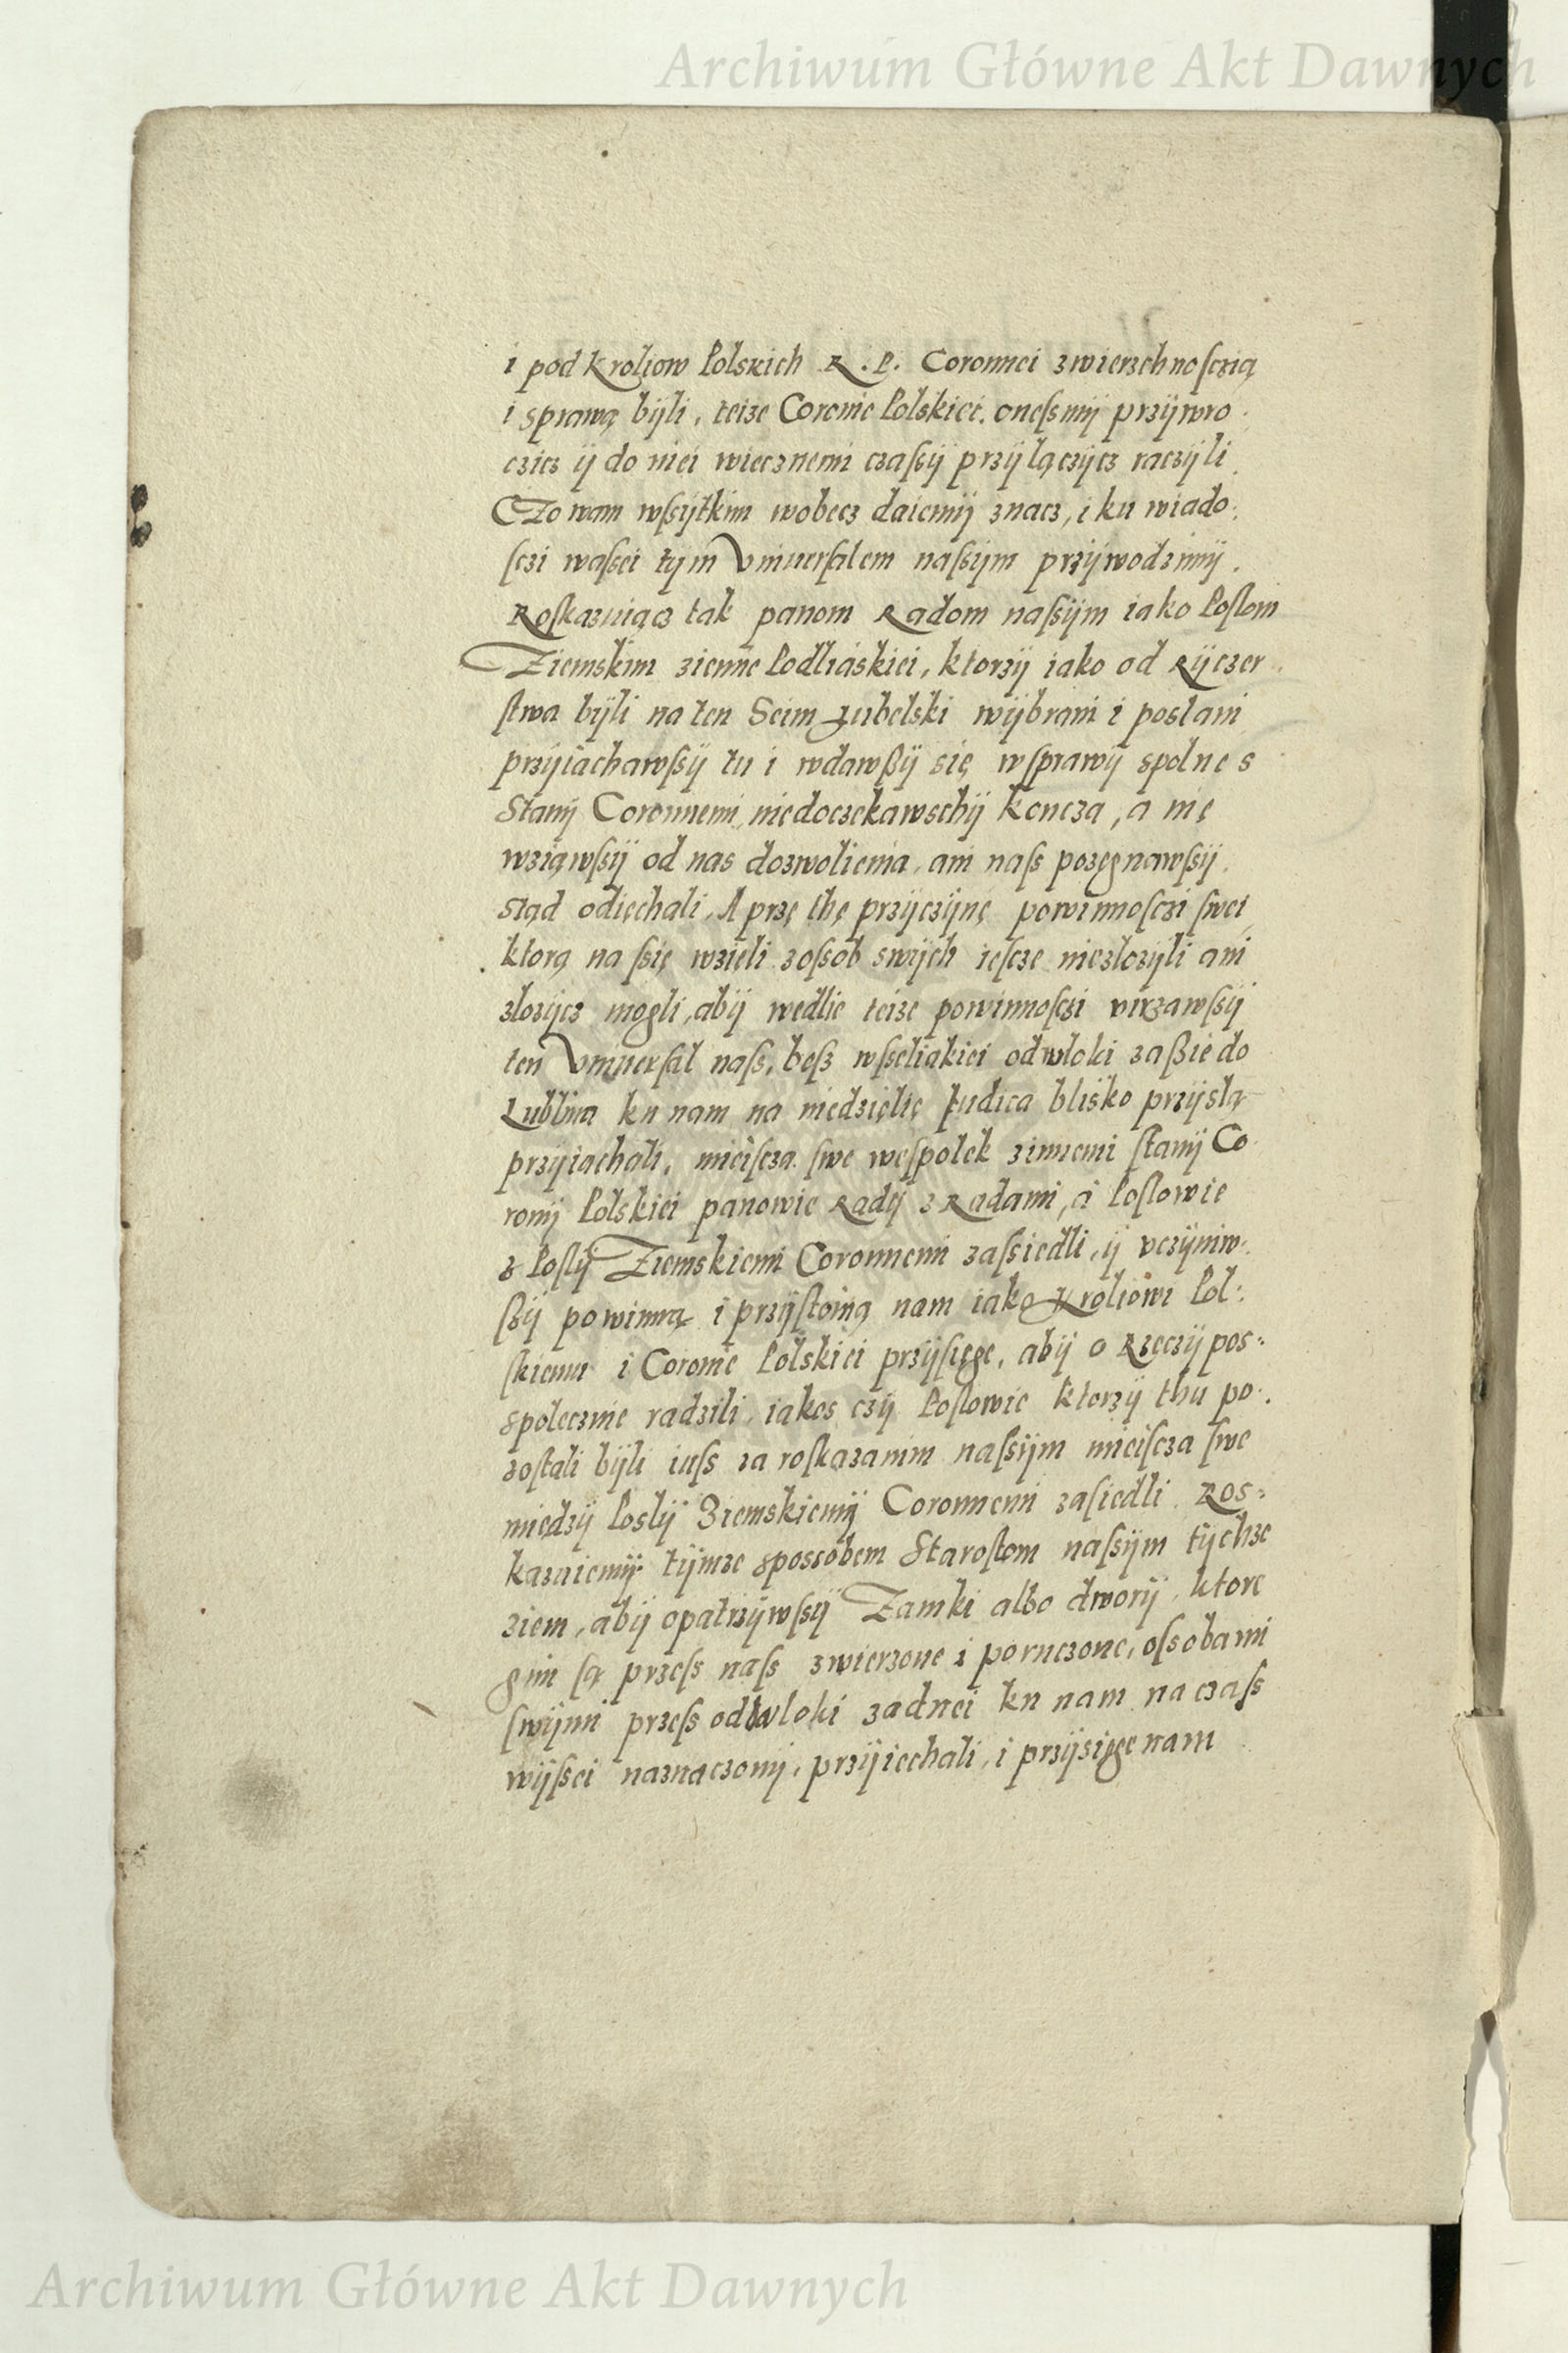 Archiwum Główne Akt Dawnych
i pod Kroliow Polskich R. P. Coronnei zwierzchnosczią
i sprawą byli, teize Coronie Polskiei. onessmy przywro.
czicz y do niei wiecznemi czassy przyłączycz raczyli.
CZo wam wssytkim wobecz daiemy znacz, i ku wiado:
sczi wassei tym Vniuersalem nassym przywodzimy.
Roskazuiącz tak panom Radom nassym iako Posłom
Ziemskim ziemie Podliaskiei, ktorzy iako od Ryczer
stwa byli na ten Seim Lubelski wybrani i posłani
przyiachawssy tu i wdawßy się w sprawy spolne s
Stany Coronnemi, niedoczekawschy koncza, a nię
wziąwssy od nas dozwolienia, ani nass pozegnawssy.
stąd odiechali, A przę thę przyczynę powinnosczi swei
ktorą na ssię wzięli zossob swych iescze niezlozyli ani
zlozycz mogli, aby wedlie teize powinnosczi virzawssy
ten Vniuersal nass, bess wsseliakiei odwloki zaßie do
Lublina ku nam na niedzielię Judica blisko przysłą
przyiachali, mieiscza swe wespolek zinnemi stany Co
rony Polskiei panowie Rady z Radami, a Posłowie
z Posły Ziemskiemi Coronnemi zassiedli, y vczyniw:
ssy powinną i przystoiną nam iako Kroliowi Pol:
skiemu i Coronie Polskiei przysięge, aby o Rzeczypos:
spolecznie radzili, iakos czy Posłowie ktorzy thu po:
zostali byli iuss za roskazanim nassym mieiscza swe
miedzy Posly Ziemskiemy Coronnemi zasiedli. Ros:
kazuiemy tymze spossobem Starostom nassym tychze
ziem, aby opatrzywssy Zamki albo dwory, ktore
gim są przess nass zwierzone i poruczone, ossobami
swymi przess odwloki zadnei ku nam na czass
wyssei naznaczony, przyiechali, i przysige nam
Archiwum Główne Akt Dawnych